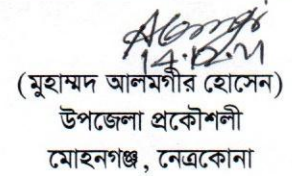 14.12.11
(মুহাম্মদ আলমগীর হোসেন)
উপজেলা প্রকৌশলী
মোহনগঞ্জ, নেত্রকোনা